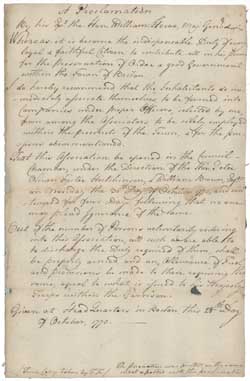 A Proclamation
By his Ex.y the Hon. William Howe, Maj. General
Whereas, it is become the indispensable Duty of every
loyal & faithful Citizen to contribute all in his Power
for the Preservation of Order & good Government
within the Town of Boston
do hereby recommend that the Inhabitants do im-
mediately associate themselves to be formed into
Companies under proper Officers, selected by me,
from among the Associators to be solely employed
within the precincts of the Town, & for the pur-
poses abovementioned.
That this Association be opened in the Council-
Chamber, under the Direction of the Hon. Peter
Oliver, Foster Hutchinson, & William Brown, Esqrs.
on Monday the Day of October and con-
tinued for four days following that no one
may plead Ignorance of the same.
Out of the number of Persons voluntarily entering
into this Association, all such as are able to
to discharge the Duty required of them shall
be properly armed and an Allowance of Fuel
and provisions be made to those requiring the
same, equal to what is issued to his Majesty's
Troops within the Garrison.
Given at Head Quarters in Boston this 28th Day
of October, 177